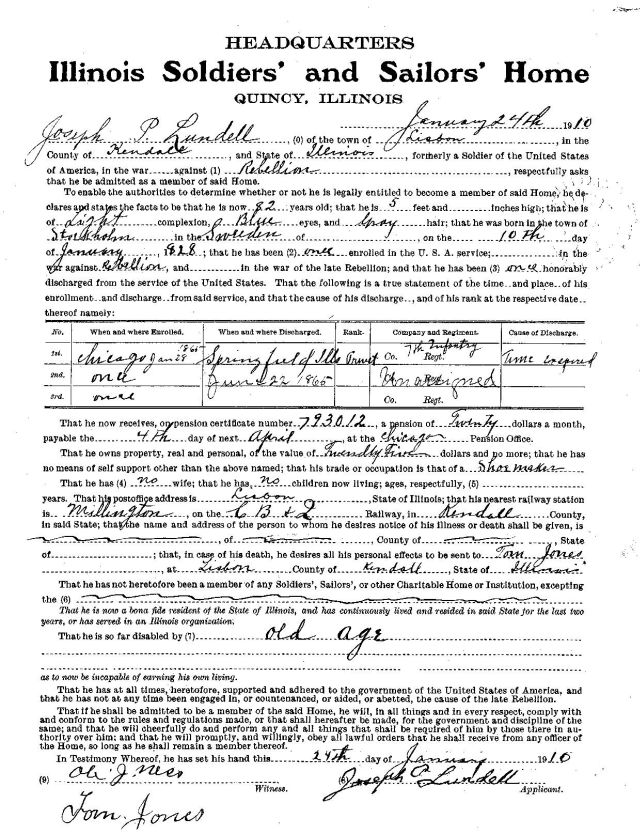 HEADQUARTERS
Illinois Soldiers' and Sailors' Home
QUINCY, ILLINOIS
January 24th 1910
Joseph P. Lundell, (0) of the town of Lisbon, in the
County of Kendall, and State of Illinois, formerly a Soldier of the United States
of America, in the war against (1) Rebellion, respectfully asks
that he be admitted as a member of said Home.
To enable the authorities to determine whether or not he is legally entitled to become a member of said Home, he de-
clares and states the facts to be that he is now 82 years old; that he is 5 feet and inches high; that he is
of Light complexion, Blue eyes, and Gray hair; that he was born in the town of
Stockholm in the Sweeden of, on the 10th day
of January, 1828; that he has been (2) once enrolled in the U. S. A. service; in the
war against Rebellion, and in the war of the late Rebellion; and that he has been (3) once honorably
discharged from the service of the United States. That the following is a true statement of the time and place of his
enrollment and discharge from said service, and that the cause of his discharge, and of his rank at the respective date
thereof namely:
No. When and where Enrolled. When and where Discharged. Rank. Company and Regiment. Cause of Discharge.
1st. Chicago Jan 28 1865 Springfield Ills Privet Co. 7th Infantry Regt. Time expired
2nd. once June 22 1865 Unassigned
3rd. once Co. Regt.
That he now receives, on pension certificate number 793012, a pension of Twenty dollars a month,
payable the 4th day of next April, at the Chicago Pension Office.
That he owns property, real and personal, of the value of Twendty Five dollars and no more; that he has
no means of self support other than the above named; that his trade or occupation is that of a Shoe maker
That he has (4) no wife; that he has no children now living; ages, respectively, (5)
years. That his postoffice address is Lisbon State of Illinois; that his nearest railway station
is Millington, on the C B & Q Railway, in Kendall County,
in said State; that the name and address of the person to whom he desires notice of his illness or death shall be given, is
, of, County of, State
of; that, in case of his death, he desires all his personal effects to be sent to Tom Jones
, at Lisbon County of Kendall, State of Illinois
That he has not heretofore been a member of any Soldiers', Sailors', or other Charitable Home or Institution, excepting
the (6)
That he is now a bona fide resident of the State of Illinois, and has continuously lived and resided in said State for the last two
years, or has served in an Illinois organization.
That he is so far disabled by (7) old age
as to now be incapable of earning his own living.
That he has at all times, heretofore, supported and adhered to the government of the United States of America, and
that he has not at any time been engaged in, or countenanced, or aided, or abetted, the cause of the late Rebellion.
That if he shall be admitted to be a member of the said Home, he will, in all things and in every respect, comply with
and conform to the rules and regulations made, or that shall hereafter be made, for the government and discipline of the
same; and that he will cheerfully do and perform any and all things that shall be required of him by those there in au-
thority over him; and that he will promptly, and willingly, obey all lawful orders that he shall receive from any officer of
the Home, so long as he shall remain a member thereof.
In Testimony Whereof, he has set his hand this 24th day of January 1910
(9) Ole J Ness (8) Joseph P Lundell
Witness. Applicant.
Tom Jones